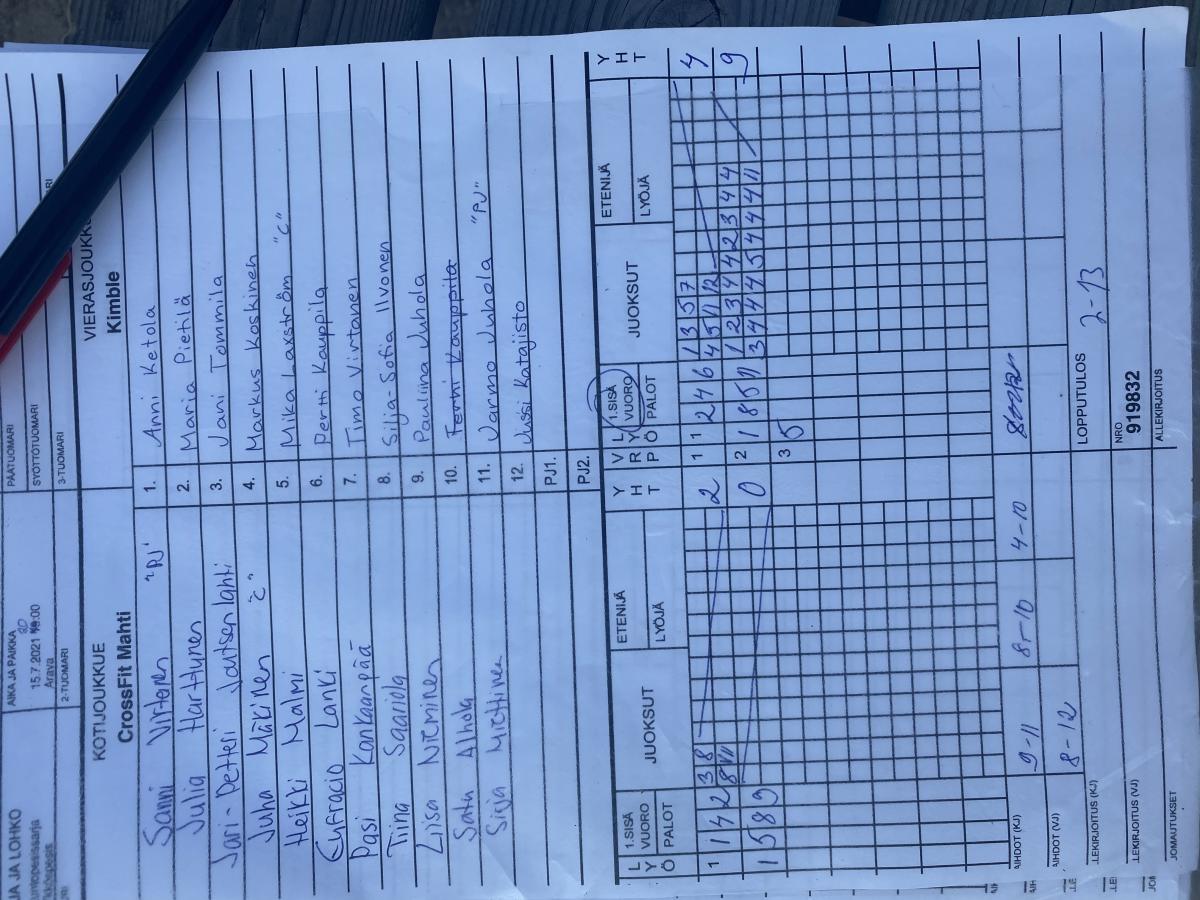 JA JA LOHKO
AIKA JA PAIKKA
15.7.2021 20:00
Arava
PÄÄTUOMARI
SYÖTTÖTUOMARI
2-TUOMARI
3-TUOMARI
KOTIJOUKKUE
CrossFit Mahti
VIERASJOUKKU
Kimble
Sanni Virtanen "PJ"
1. Anni Ketola
Julia Harttunen
2. Maria Pietilä
Jari-Petteri Joutsenlahti
3. Jani Tommila
Juha Mäkinen "C"
4. Markus Koskinen
Heikki Malmi
5. Mika Laxström "C"
Eufracio Lanki
6. Pertti Kauppila
Pasi Kankaanpää
7. Timo Virtanen
Tiina Saariola
8. Silja-Sofia Ilvonen
Liisa Nieminen
9. Pauliina Juhola
Satu Alhola
10. Pertti Kauppila
Sirja Miettinen
11. Jarmo Juhola "PJ"
12. Jussi Katajisto
PJ1.
PJ2.
LYÖ 1.SISÄ VUORO PALOT JUOKSUT ETENIJÄ LYÖJÄ YHT VRP LYÖ 1.SISÄ VUORO PALOT JUOKSUT ETENIJÄ LYÖJÄ YHT
1 1 4 2 3 8 2 1 1 2 4 6 1 3 5 7 4
8 11 4 5 11 12
1 5 8 9 0 2 1 8 5 11 1 2 3 4 4 2 3 4 4 9
3 4 4 4 5 4 4 4 11
3 5
AIHDOT (KJ) 9-11 8-10 4-10
AIHDOT (VJ) 8-12
LOPPUTULOS 2-13
LEKIRJOITUS (KJ)
NRO
919832
LEKIRJOITUS (VJ)
ALLEKIRJOITUS
JOMAUTUKSET